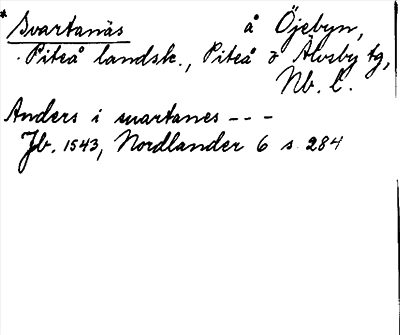 * Svartanäs å Öjebyn,
Piteå landsk., Piteå o Älvsby tg,
Nb. l.
Anders i suartanes - - -
Jb. 1543, Nordlander 6 s 284